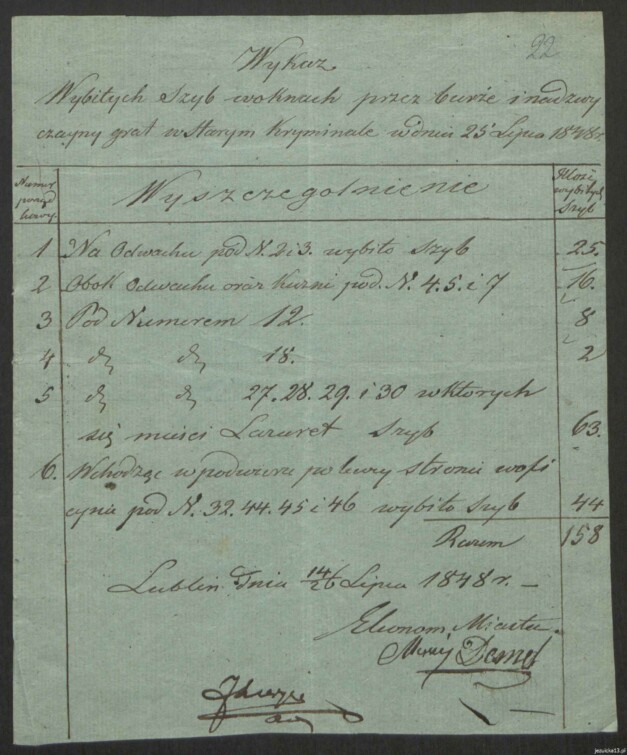 22
Wykaz
Wybitych Szyb woknach przez burże i nadzwy
czayny grat w starym Kryminale w dniu 25 Lipca 1848 r.
Numer
porząd
kowy.
Wyszczegolnienie
Ilość
wybitych
Szyb
1 Na Odwachu pod N. 2 i 3. wybito Szyb 25.
2 Obok Odwachu oraz Kuzni pod. N. 4. 5. i 7 16.
3 Pod Numerem 12. 8
4 dto dto 18. 2
5 dto dto 27. 28. 29. i 30 wktorych
się mieści Lazaret Szyb 63.
6. Wchodząc w podworze po lewy stronie wofi
cynie pod N. 32. 44. 45 i 46 wybito Szyb 44
Razem 158
Lublin Dnia 14/26 Lipca 1848 r. —
Ekonom Miasta
jezuicka13.pl